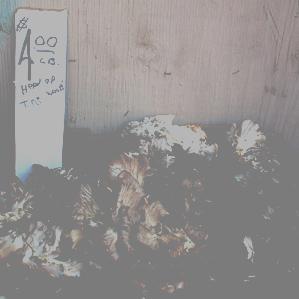 $4.00
LB.
HEN OF
THE WOODS